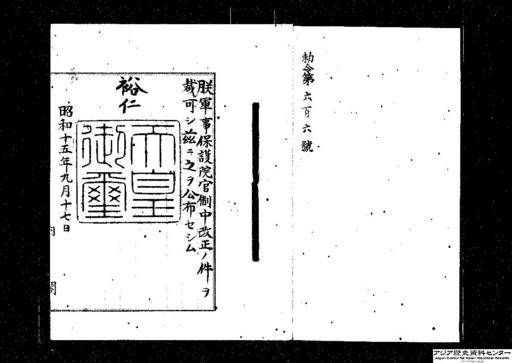 勅令第六百六號
朕軍事保護院官制中改正ノ件ヲ
裁可シ茲ニ之ヲ公布セシム
裕仁
天皇御璽
昭和十五年九月十七日
内閣
アジア歴史資料センター
Japan Center for Asian Historical Records